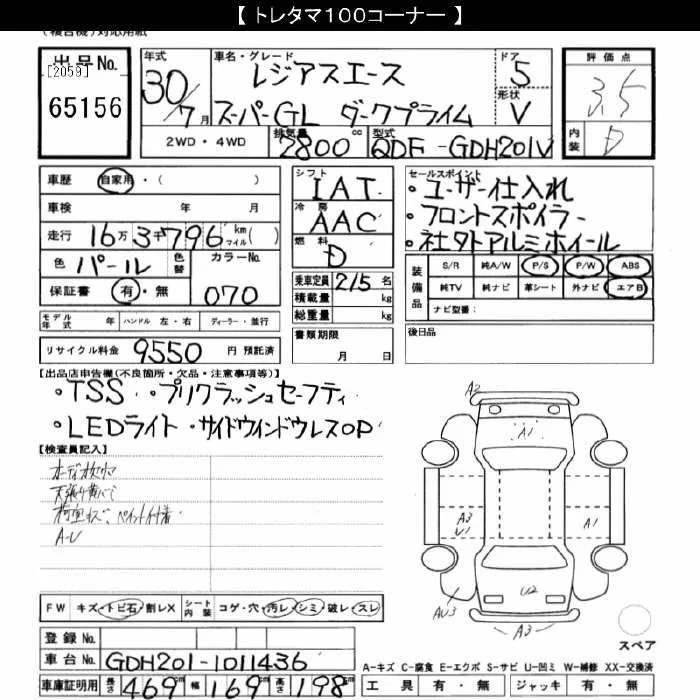 【 トレタマ100コーナー 】
(複合機)対応用紙
出品No.
[2059]
65156
年式
30/7月
車名・グレード
レジアスエース
スーパーGL ダークプライム
ドア
5
形状
V
評価点
3.5
内装
D
2WD・4WD
排気量
2800cc
型式
QDF-GDH201V
車歴 自家用・( )
車検 年 月
走行 16万3千796 km マイル( )
色 パール 色替
カラーNo.
070
保証書 有・無
シフト
IAT
冷房
AAC
燃料
D
乗車定員 2/5 名
積載量 kg
総重量 kg
セールスポイント
・ユーザー仕入れ
・フロントスポイラー
・社外アルミホイール
装備品
S/R 純A/W P/S P/W ABS
純TV 純ナビ 革シート 外ナビ エアB
ナビ型番:
モデル年式 年 ハンドル 左・右 ディーラー・並行
リサイクル料金 9550 円 預託済
書類期限
月 日
後日品
【出品店申告欄(不良箇所・欠品・注意事項等)】
・TSS ・プリクラッシュセーフティ
・LEDライト ・サイドウインドウレスOP
【検査員記入】
A-U
A2
A1
A3
U1
A1
U2
AU3
A3
スペア
FW キズ・トビ石・割レX シート内装 コゲ・穴・汚レ・シミ・破レ・スレ
登録No.
車台No. GDH201-1011436
車庫証明用 長さ 469cm 幅 169cm 高さ 198cm
A-キズ C-腐食 E-エクボ S-サビ U-凹ミ W-補修 XX-交換済
工具 有・無 ジャッキ 有・無